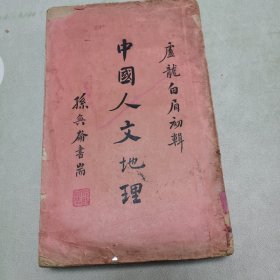 盧龍白眉初輯
中國人文地理
孫奐崙書耑